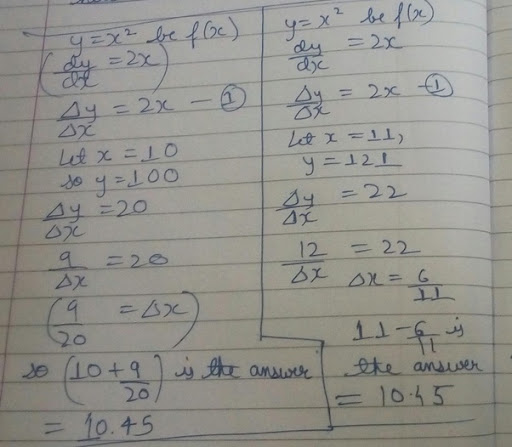 y = x² be f(x)
(dy/dx = 2x)
Δy/Δx = 2x — ①
Let x = 10
so y = 100
Δy/Δx = 20
9/Δx = 20
(9/20 = Δx)
so (10 + 9/20) is the answer
= 10.45
y = x² be f(x)
dy/dx = 2x
Δy/Δx = 2x — ①
Let x = 11,
y = 121
Δy/Δx = 22
12/Δx = 22
Δx = 6/11
11 - 6/11 is
the answer
= 10.45